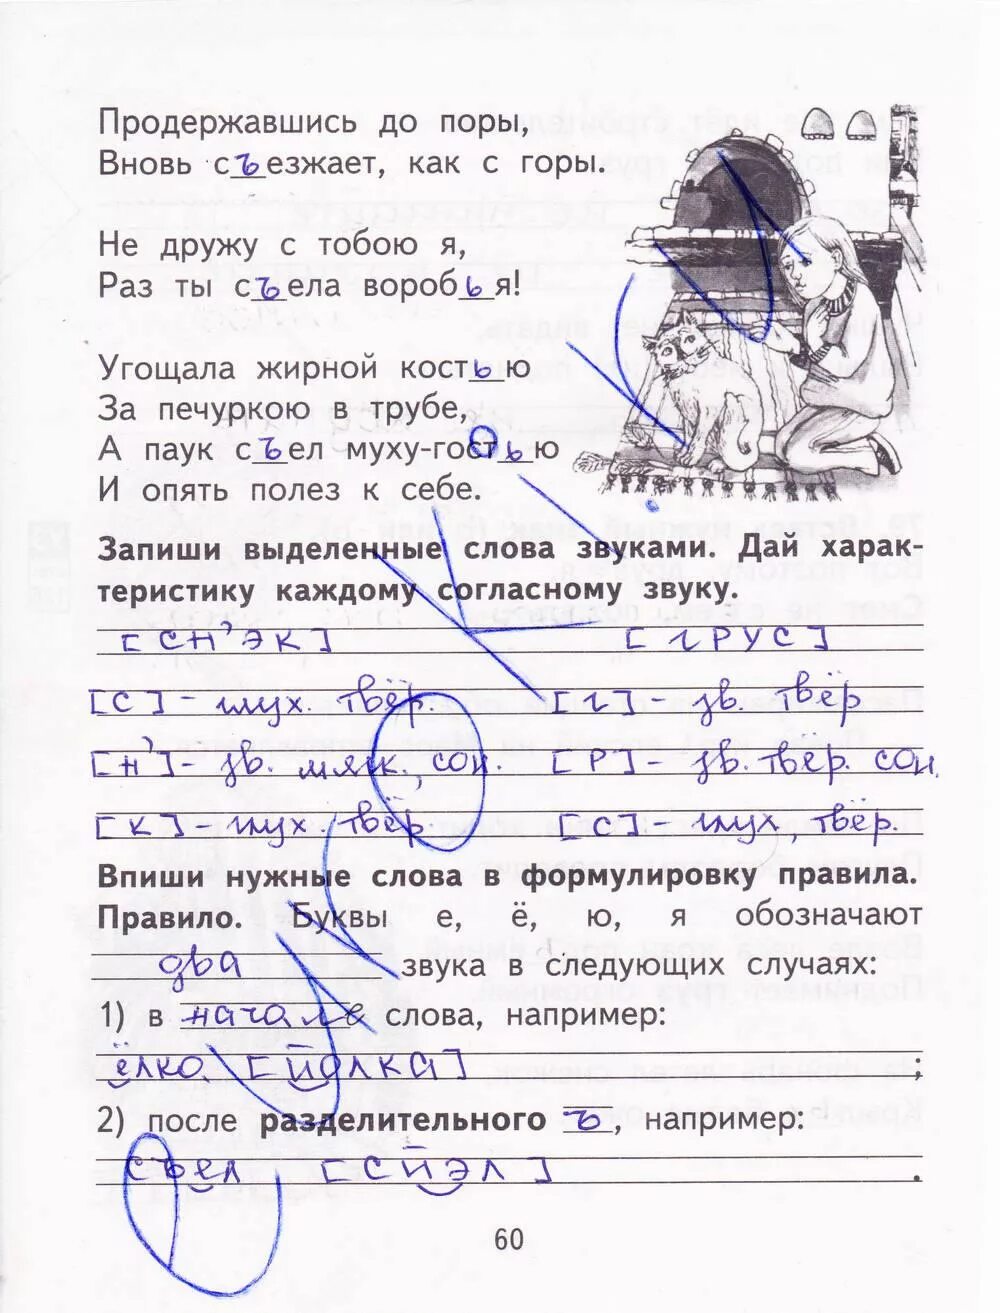 Продержавшись до поры,
Вновь съезжает, как с горы.
Не дружу с тобою я,
Раз ты съела воробья!
Угощала жирной костью
За печуркою в трубе,
А паук съел муху-гостью
И опять полез к себе.
Запиши выделенные слова звуками. Дай харак-
теристику каждому согласному звуку.
[СН'ЭК] [ГРУС]
[С] - глух. твёр. [Г] - зв. твёр
[Н'] - зв. мягк., сон. [Р] - зв. твёр. сон.
[К] - глух. твёр. [С] - глух, твёр.
Впиши нужные слова в формулировку правила.
Правило. Буквы е, ё, ю, я обозначают
два звука в следующих случаях:
1) в начале слова, например:
ёлка [ЙОЛКА] ;
2) после разделительного ъ, например:
съел [СЙЭЛ] .
60